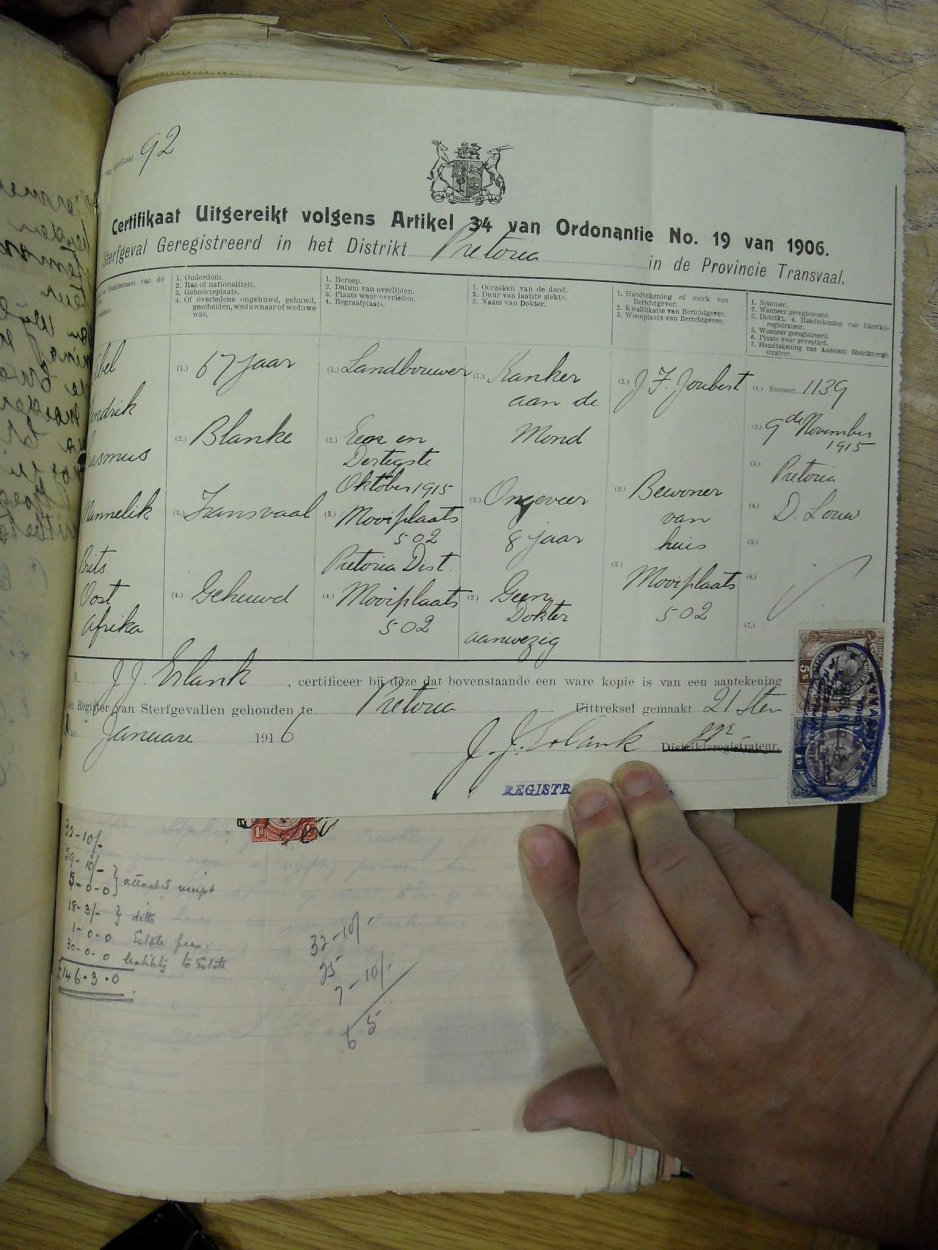 92
Certifikaat Uitgereikt volgens Artikel 34 van Ordonantie No. 19 van 1906.
Sterfgeval Geregistreerd in het Distrikt Pretoria in de Provincie Transvaal.
1. Ouderdom.
2. Ras of nationaliteit.
3. Geboorteplaats.
4. Of overledene ongehuwd, gehuwd,
gescheiden, weduwnaar of weduwe
was.
1. Beroep.
2. Datum van overlijden.
3. Plaats waar overleden.
4. Begraafplaats.
1. Oorzaken van de dood.
2. Duur van laatste ziekte.
3. Naam van Dokter.
1. Handtekening of merk van
Berichtgever.
2. Kwalifikatie van Berichtgever.
3. Woonplaats van Berichtgever.
1. Nommer.
2. Wanneer geregistreerd.
3. Distrikt. 4. Handtekening van Distrikts-
registrateur.
5. Wanneer geregistreerd.
6. Plaats waar gevestigd.
7. Handtekening van Assistent Distrikt-regi-
strateur.
ndrik
asmus
annelik
Brits
Oost
Afrika
(1.) 67 jaar
(2.) Blanke
(3.) Transvaal
(4.) Gehuwd
(1.) Landbouwer
(2.) Een en
Dertigste
Oktober 1915
(3.) Mooiplaats
502
Pretoria Dist.
(4.) Mooiplaats
502
(1.) Kanker
aan de
Mond
(2.) Ongeveer
8 jaar
(3.) Geen
Dokter
aanwezig
(1.) J F Joubert
(2.) Bewoner
van
huis
(3.) Mooiplaats
502
(1.) Nummer 1139
(2.) 9de November
1915
(3.) Pretoria
(4.) D. Louw
(5.)
(6.)
(7.)
J J. Erlank, certificeer bij deze dat bovenstaande een ware kopie is van een aantekening
Register van Sterfgevallen gehouden te Pretoria Uittreksel gemaakt 21 sten
Januarie 1916
J. J. Erlank Distriktsregistrateur.
REGISTR
5s
1d
32-10/-
59-10/-
5-0-0 } attached receipt
18-3/- } ditto
1-0-0 Estate fees
30-0-0 liability to Estate
£146.3.0
32-10/-
25
7-10/-
65